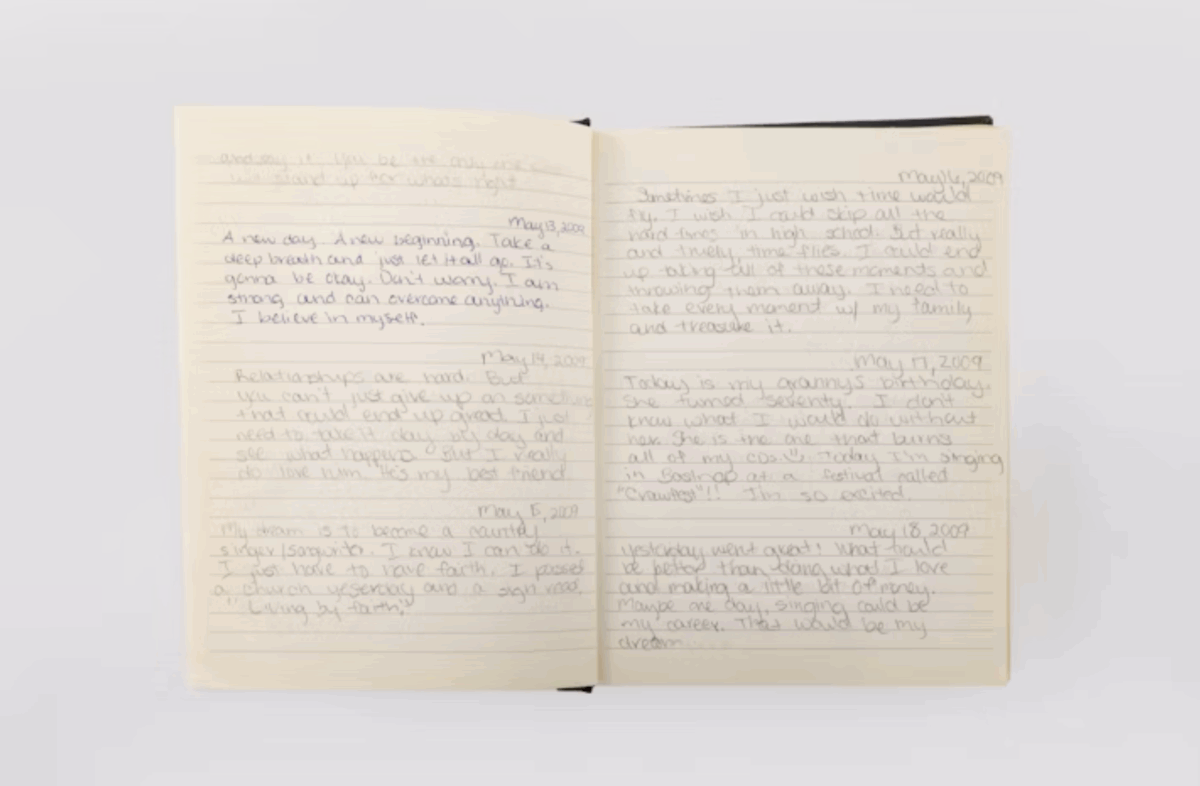 and say it. You be the only one
will stand up for what's right
May 13, 2009
A new day. A new beginning. Take a
deep breath and just let it all go. It's
gonna be okay. Don't worry. I am
strong and can overcome anything.
I believe in myself.
May 14, 2009
Relationships are hard. But
you can't just give up on something
that could end up great. I just
need to take it day by day and
see what happens. But I really
do love him. He's my best friend.
May 15, 2009
My dream is to become a country
singer/songwriter. I know I can do it.
I just have to have faith. I passed
a church yesterday and a sign read,
"Living by faith."
May 16, 2009
Sometimes I just wish time would
fly. I wish I could skip all the
hard times in high school. But really
and truely, time flies. I could end
up taking all of these moments and
throwing them away. I need to
take every moment w/ my family
and treasure it.
May 17, 2009
Today is my granny's birthday.
She turned seventy. I don't
know what I would do without
her. She is the one that burns
all of my cds. Today I'm singing
in Bastrop at a festival called
"Crawfest"!! I'm so excited.
May 18, 2009
yesterday went great! What could
be better than doing what I love
and making a little bit of money.
Maybe one day, singing could be
my career. That would be my
dream